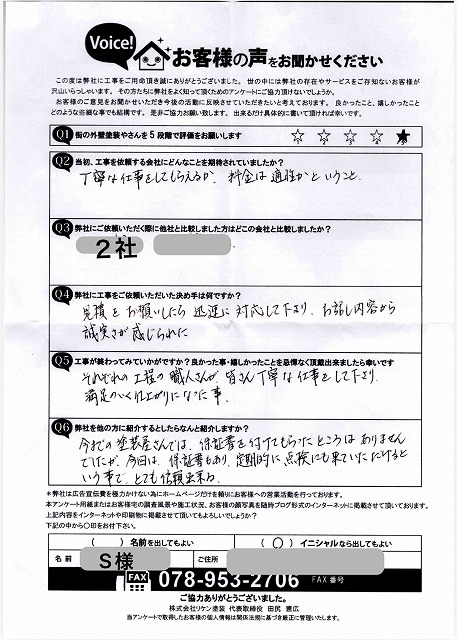 Voice!
お客様の声をお聞かせください
この度は弊社に工事をご用命頂き誠にありがとうございました。世の中には弊社の存在やサービスをご存知ないお客様が
沢山いらっしゃいます。その方たちに弊社をよく知って頂くためのアンケートにご協力頂けないでしょうか。
お客様のご意見をお聞かせいただき今後の活動に反映させていただきたいと考えております。良かったこと、嬉しかったこと
どのような些細な事でも結構です。是非ご協力お願い致します。出来るだけ具体的に書いて頂ければ幸いです。
Q1 街の外壁塗装やさんを5段階で評価をお願いします ☆ ☆ ☆ ☆ ★
Q2 当初、工事を依頼する会社にどんなことを期待されていましたか?
丁寧な仕事をしてもらえるか、料金は適性かということ。
Q3 弊社にご依頼いただく際に他社と比較しました方はどこの会社と比較しましたか?
2社
Q4 弊社に工事をご依頼いただいた決め手は何ですか?
見積をお願いしたら迅速に対応して下さり、お話し内容から
誠実さが感じられた
Q5 工事が終わってみていかがですか?良かった事・嬉しかったことを忌憚なく頂戴出来ましたら幸いです
それぞれの工程の職人さんが、皆さん丁寧な仕事をして下さり、
満足のいく仕上がりになった事。
Q6 弊社を他の方に紹介するとしたらなんと紹介しますか?
今までの塗装屋さんでは、保証書を付けてもらったところはありません
でしたが、今回は、保証書もあり、定期的に点検にも来ていただけると
いう事で、とても信頼出来る。
*弊社は広告宣伝費を極力かけない為にホームページだけを頼りにお客様への営業活動を行っております。
本アンケート用紙またはお客様宅の調査風景や施工状況、お客様の顔写真を随時ブログ形式のインターネットに掲載させて頂いております。
上記内容をインターネットや印刷物に掲載させて頂いてもよろしいでしょうか?
下記の中から〇印をお付下さい。
( ) 名前を出してもよい ( 〇 ) イニシャルなら出してもよい
名前 S様 ご住所
FAX 078-953-2706 FAX番号
ご協力ありがとうございました。
株式会社リケン塗装 代表取締役 田尻 憲広
当アンケートで取得したお客様の個人情報は関係法規に基づき厳正に管理いたします。